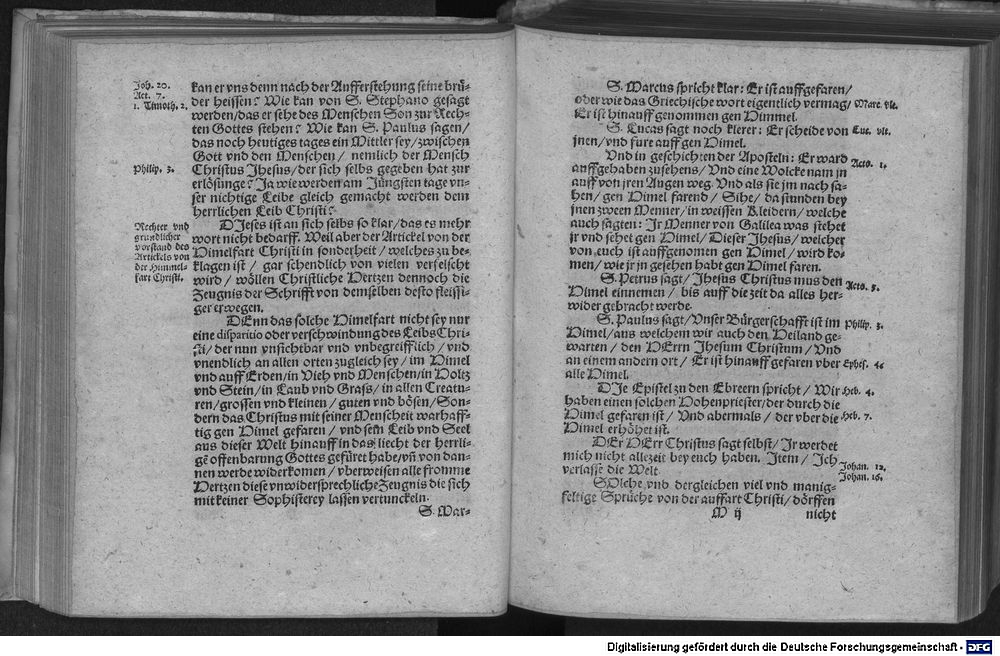 Joh. 20.
Act. 7.
1. Timoth. 2.
Philip. 3.
Rechter vnd
gründlicher
vorstand des
Artickels von
der Himmel-
fart Christi.
kan er vns denn nach der Aufferstehung seine brü-
der heissen? Wie kan von S. Stephano gesagt
werden/das er sehe des Menschen Son zur Rech-
ten Gottes stehen? Wie kan S. Paulus sagen/
das noch heutiges tages ein Mittler sey/zwischen
Gott vnd den Menschen/ nemlich der Mensch
Christus Jhesus/der sich selbs gegeben hat zur
erlösunge? Ja wie werden am Jüngsten tage vn-
ser nichtige Leibe gleich gemacht werden dem
herrlichen Leib Christi?
DJeses ist an sich selbs so klar/das es mehr
wort nicht bedarff. Weil aber der Artickel von der
Himelfart Christi in sonderheit/welches zu be-
klagen ist/ gar schendlich von vielen verfelscht
wird/ wöllen Christliche Hertzen dennoch die
Zeugnis der Schrifft von demselben desto fleissi-
ger erwegen.
DEnn das solche Himelfart nicht sey nur
eine disparitio oder verschwindung des Leibs Chri-
sti/ der nun vnsichtbar vnd vnbegreifflich/ vnd
vnendlich an allen orten zugleich sey/ im Himel
vnd auff Erden/in Vieh vnd Menschen/in Holtz
vnd Stein/in Laub vnd Grass/in allen Creatu-
ren/grossen vnd kleinen/ guten vnd bösen/Son-
dern das Christus mit seiner Menscheit warhaff-
tig gen Himel gefaren/ vnd sein Leib vnd Seel
aus dieser Welt hinauff in das liecht der herrli-
gē offenbarung Gottes gefüret habe/vn̄ von dan-
nen werde widerkomen/ vberweisen alle fromme
Hertzen diese vnwidersprechliche Zeugnis die sich
mit keiner Sophisterey lassen vertunckeln.
S. Mar-
S. Marcus spricht klar: Er ist auffgefaren/
oder wie das Griechische wort eigentlich vermag/
Er ist hinauff genommen gen Himmel.
S. Lucas sagt noch klerer: Er scheide von
jnen/vnd fure auff gen Himel.
Vnd in geschichten der Aposteln: Er ward
auffgehaben zusehens/ Vnd eine Wolcke nam jn
auff von jren Augen weg. Vnd als sie jm nach sa-
hen/ gen Himel farend/ Sihe/ da stunden bey
jnen zween Menner/in weissen Kleidern/ welche
auch sagten: Jr Menner von Galilea was stehet
jr vnd sehet gen Himel/ Dieser Jhesus/ welcher
von euch ist auffgenomen gen Himel/ wird ko-
men/ wie jr jn gesehen habt gen Himel faren.
S. Petrus sagt/ Jhesus Christus mus den
Himel einnemen/ bis auff die zeit da alles her-
wider gebracht werde
S. Paulus sagt/ Vnser Bürgerschafft ist im
Himel/aus welchem wir auch den Heiland ge-
warten/ den HErrn Jhesum Christum/ Vnd
an einem andern ort/ Er ist hinauff gefaren vber
alle Himel.
DJe Epistel zu den Ebreern spricht/ Wir
haben einen solchen Hohenpriester/der durch die
Himel gefaren ist/ Vnd abermals/ der vber die
Himel erhöhet ist.
DEr HErr Christus sagt selbst/ Jr werdet
mich nicht allezeit bey euch haben. Item/ Ich
verlasse die Welt
SOlche vnd dergleichen viel vnd manig-
feltige Sprüche von der auffart Christi/ dörffen
M ij nicht
Marc. vlt.
Luc. vlt.
Acto. 1.
Acto. 3.
Philip. 3.
Ephes. 4
Heb. 4.
Heb. 7.
Johan. 12.
Johan. 16.
Digitalisierung gefördert durch die Deutsche Forschungsgemeinschaft - DFG